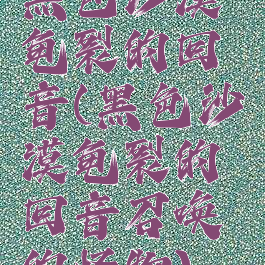 黑色沙漠
龟裂的回
音(黑色沙
漠龟裂的
回音召唤
的怪物)